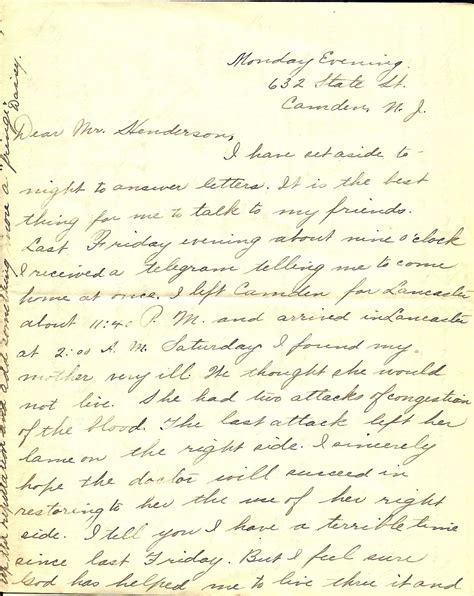 Monday Evening.
632 State St.
Camden, N. J.
Dear Mr. Henderson,
I have set aside to-
night to answer letters. It is the best
thing for me to talk to my friends.
Last Friday evening about nine o'clock
I received a telegram telling me to come
home at once. I left Camden for Lancaster
about 11:40 P. M. and arrived in Lancaster
at 2:00 A. M. Saturday I found my
mother very ill. We thought she would
not live. She had two attacks of congestion
of the blood. The last attack left her
lame on the right side. I sincerely
hope the doctor will succeed in
restoring to her the use of her right
side. I tell you I have a terrible time
since last Friday. But I feel sure
God has helped me to live thru it and
Daisy.